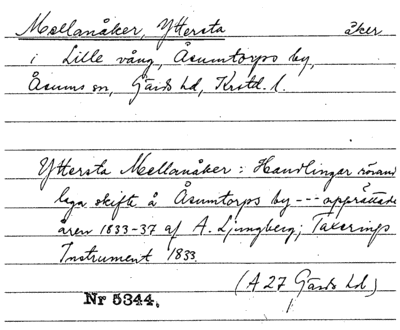 Mellanåker, Yttersta åker
i Lille vång, Åsumtorps by,
Åsums sn, Gärds hd, Krstd. l.
Yttersta Mellanåker: Handlingar rörand
laga skifte å Åsumtorps by --- upprättade
åren 1833-37 af A. Ljungberg; Taxerings
Instrument 1833.
(A 27 Gärds hd)
Nr 5344.